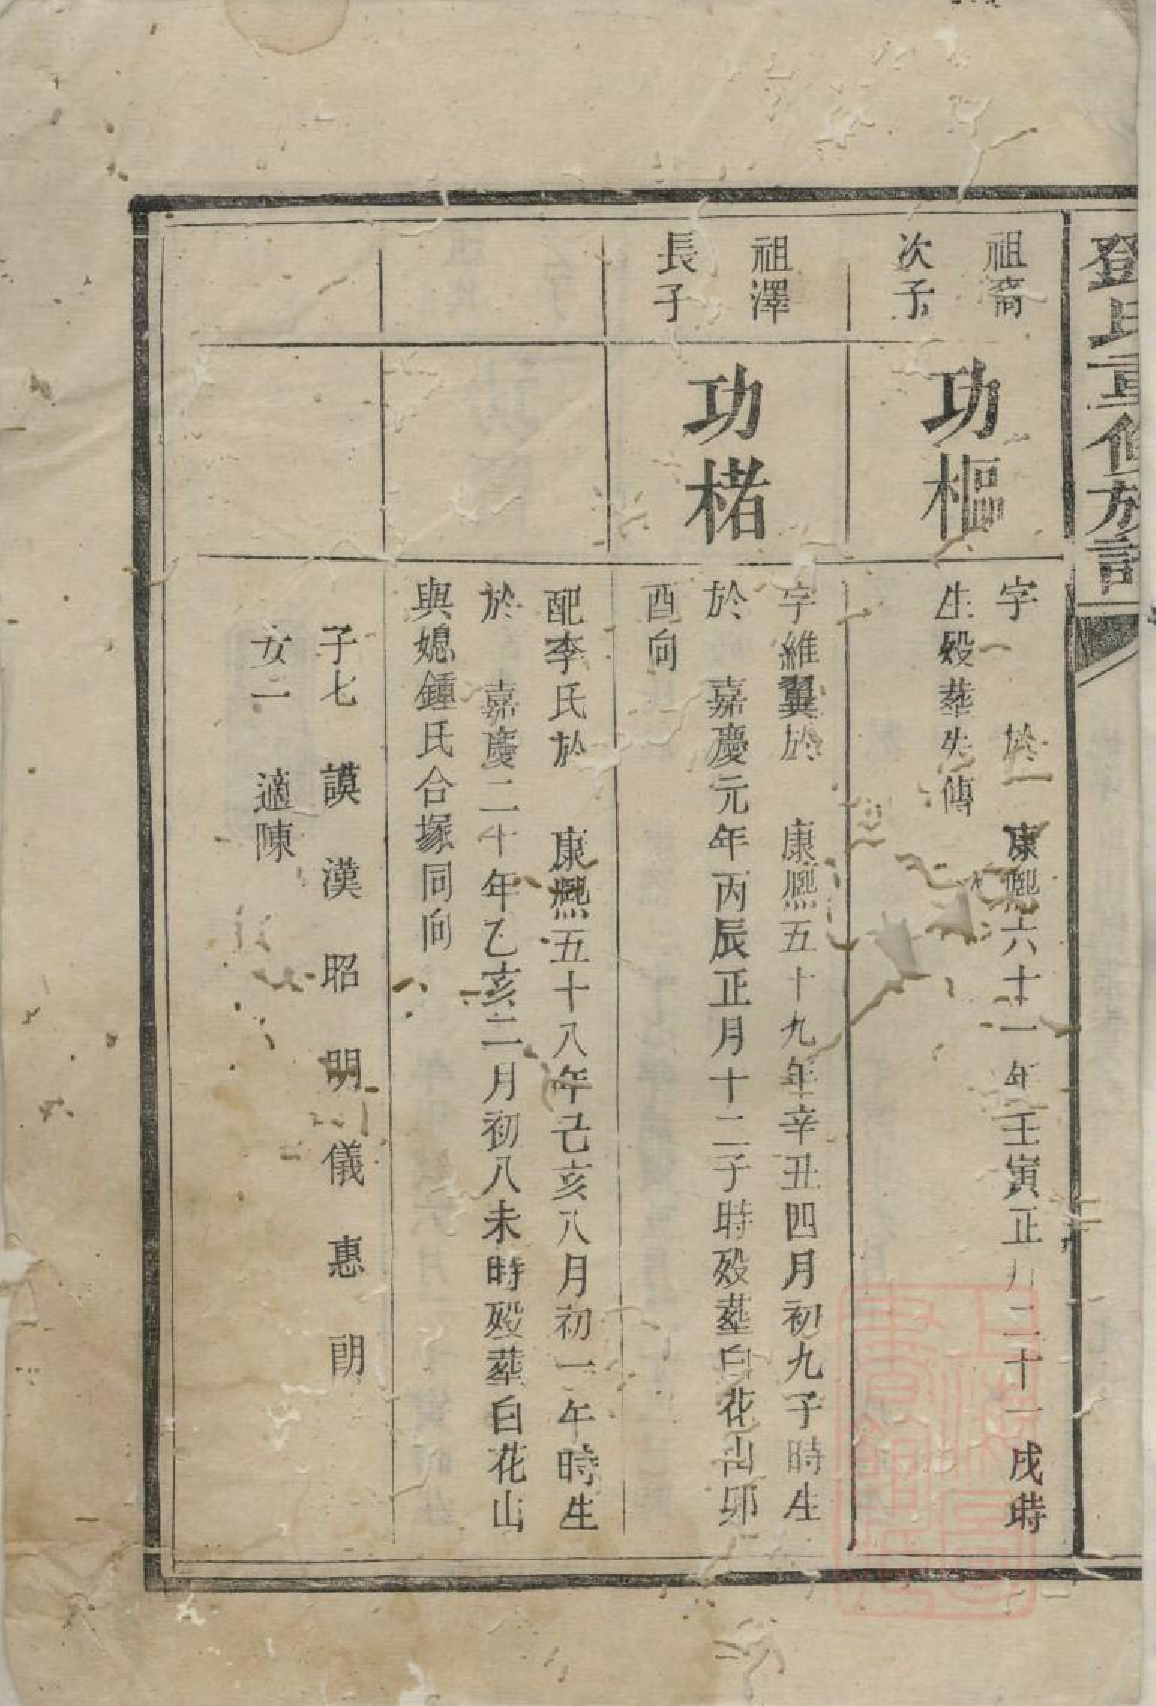 鄧氏重修族譜
祖裔
次子
功樞
字 於 康熙六十一年壬寅正月二十一戌時
生殁葬失傳
祖澤
長子
功楮
字維翼於 康熙五十九年辛丑四月初九子時生
於 嘉慶元年丙辰正月十二子時殁葬白花山卯
酉向
配李氏於 康熙五十八年己亥八月初一午時生
於 嘉慶二十年乙亥二月初八未時殁葬白花山
與媳鍾氏合塚同向
子七 謨 漢 昭 明 儀 惠 朗
女二 適陳